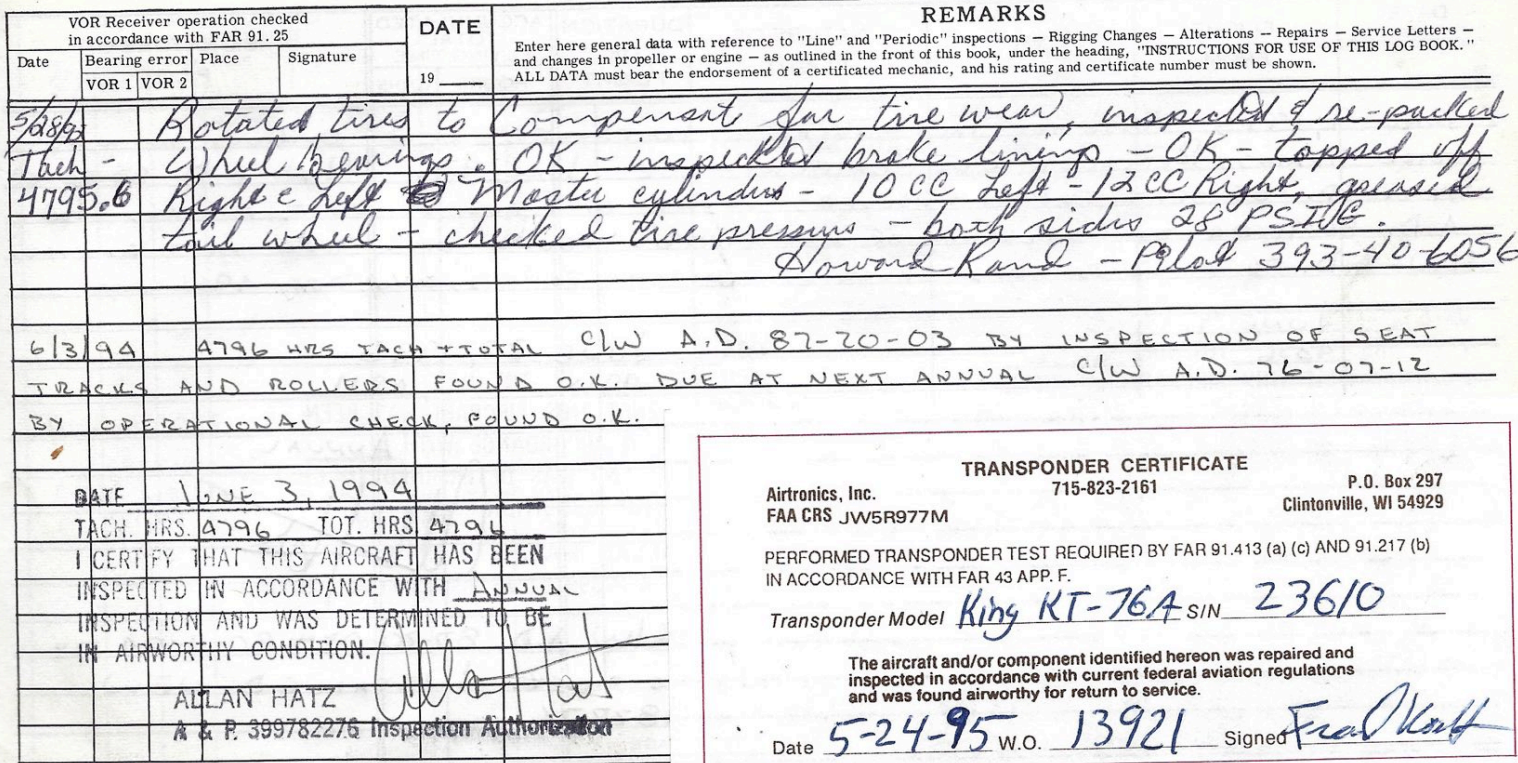 VOR Receiver operation checked
in accordance with FAR 91.25
Date
Bearing error
VOR 1 VOR 2
Place
Signature
DATE
19
REMARKS
Enter here general data with reference to "Line" and "Periodic" inspections — Rigging Changes — Alterations — Repairs — Service Letters —
and changes in propeller or engine — as outlined in the front of this book, under the heading, "INSTRUCTIONS FOR USE OF THIS LOG BOOK."
ALL DATA must bear the endorsement of a certificated mechanic, and his rating and certificate number must be shown.
Rotated tires to Compensat for tire wear, inspected & re-packed
Tach - Wheel bearings. OK - inspected brake linings - OK - topped off
4795.6 Right & Left Master cylinders - 10 CC Left - 12 CC Right, greased
tail wheel - checked tire pressures - both sides 28 PSIG.
Howard Rand - Pilot 393-40-6056
6/3/94 4796 HRS TACH + TOTAL C/W A.D. 87-20-03 BY INSPECTION OF SEAT
TRACKS AND ROLLERS FOUND O.K. DUE AT NEXT ANNUAL C/W A.D. 76-07-12
BY OPERATIONAL CHECK, FOUND O.K.
DATE JUNE 3, 1994
TACH. HRS. 4796 TOT. HRS 4796
I CERTIFY THAT THIS AIRCRAFT HAS BEEN
INSPECTED IN ACCORDANCE WITH ANNUAL
INSPECTION AND WAS DETERMINED TO BE
IN AIRWORTHY CONDITION.
ALLAN HATZ
A & P. 399782276 Inspection Authorization
TRANSPONDER CERTIFICATE
715-823-2161
Airtronics, Inc.
FAA CRS JW5R977M
P.O. Box 297
Clintonville, WI 54929
PERFORMED TRANSPONDER TEST REQUIRED BY FAR 91.413 (a) (c) AND 91.217 (b)
IN ACCORDANCE WITH FAR 43 APP. F.
Transponder Model King KT-76A S/N 23610
The aircraft and/or component identified hereon was repaired and
inspected in accordance with current federal aviation regulations
and was found airworthy for return to service.
Date 5-24-95 W.O. 13921 Signed